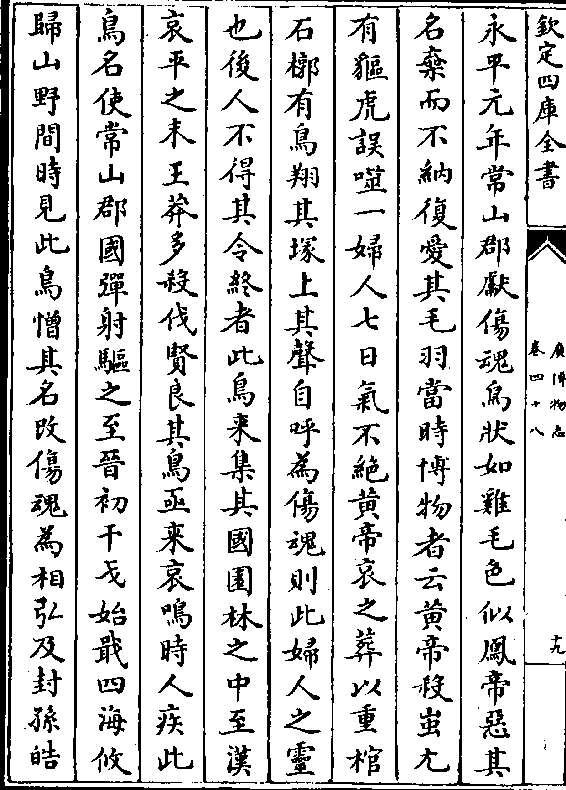 欽定四庫全書
廣博物志
卷四十八
十九
永平元年常山郡獻傷魂鳥狀如雞毛色似鳳帝惡其
名棄而不納復愛其毛羽當時博物者云黄帝殺蚩尤
有貙虎誤噬一婦人七日氣不絶黄帝哀之葬以重棺
石槨有鳥翔其塚上其聲自呼為傷魂則此婦人之靈
也後人不得其令終者此鳥來集其國園林之中至漢
哀平之末王莽多殺伐賢良其鳥亟來哀鳴時人疾此
鳥名使常山郡國彈射驅之至晉初干戈始戢四海攸
歸山野間時見此鳥憎其名改傷魂為相弘及封孫皓